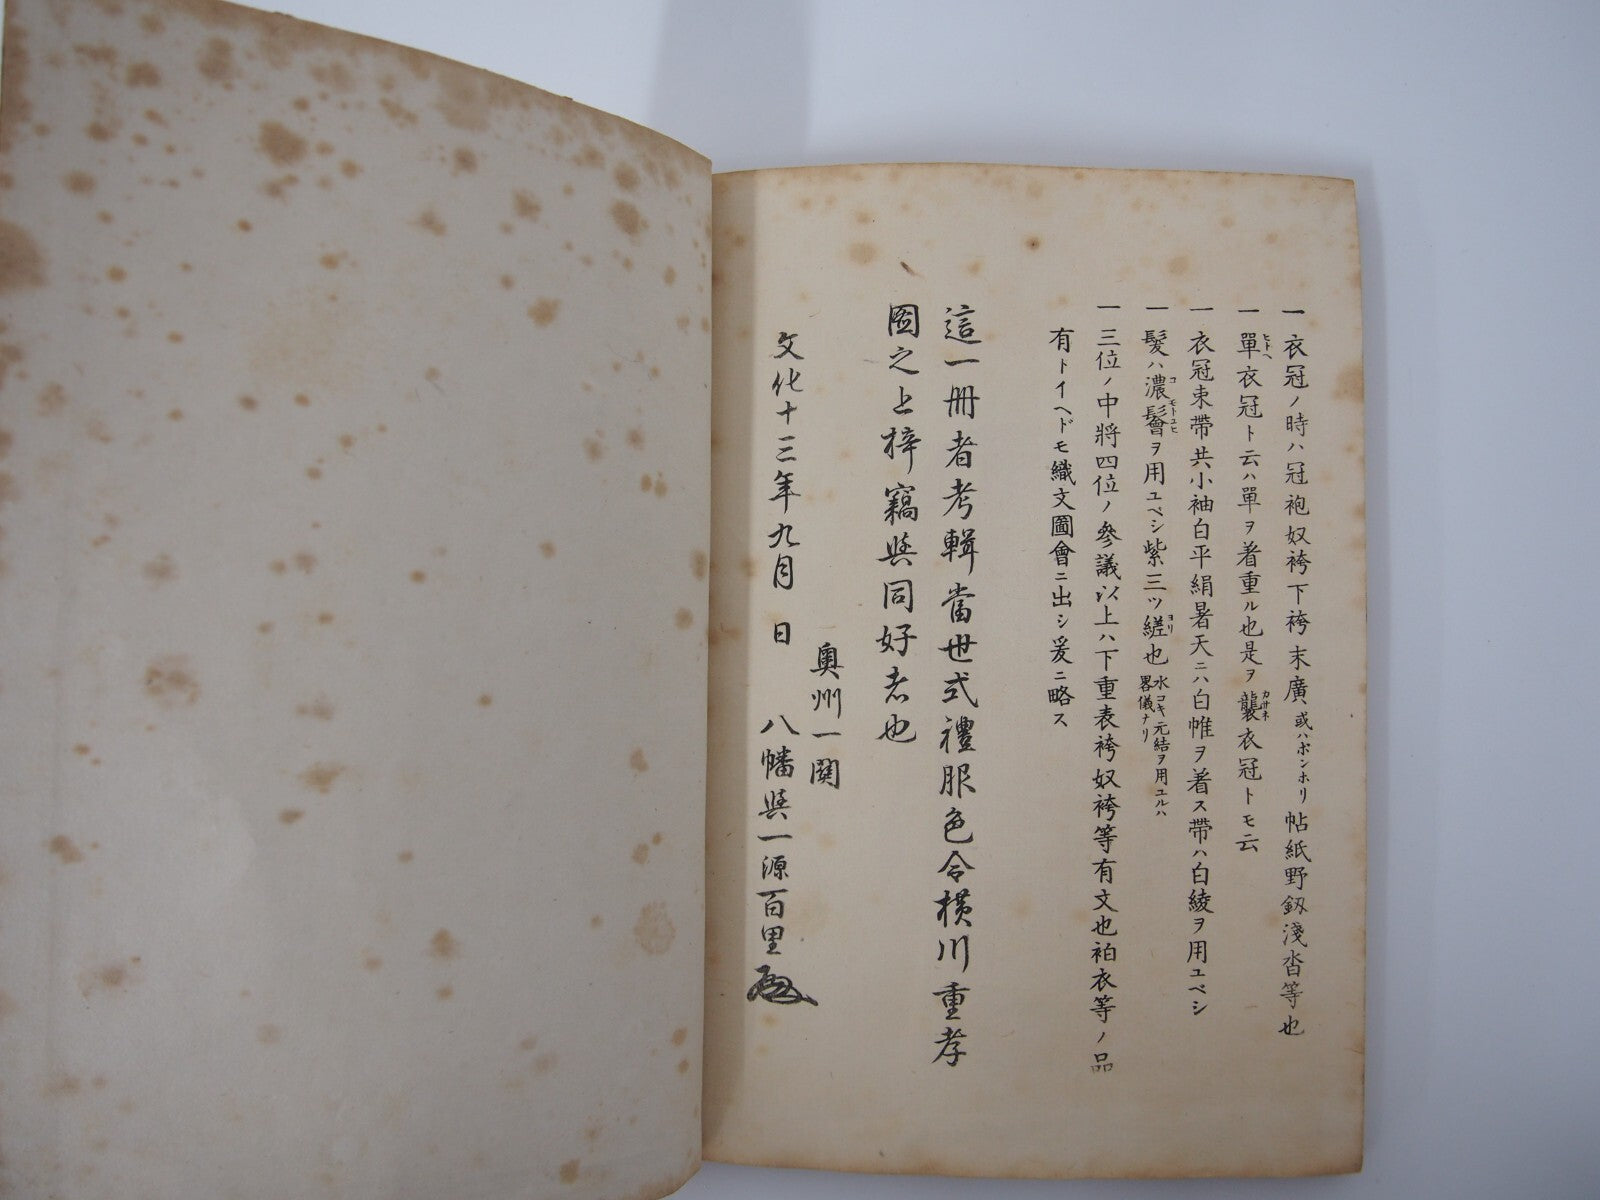 一衣冠ノ時ハ冠袍奴袴下袴末廣或ハボンボリ帖紙野釼淺沓等也
一單衣冠ト云ハ單ヲ着重ル也是ヲ襲衣冠トモ云
ヒトヘ
カサネ
一衣冠束帶共小袖白平絹暑天ニハ白帷ヲ着ス帶ハ白綾ヲ用ユベシ
一髮ハ濃鬠ヲ用ユベシ紫三ツ縒也水コキ元結ヲ用ユルハ畧儀ナリ
コ モトユヒ
ヨリ
一三位ノ中將四位ノ參議以上ハ下重表袴奴袴等有文也袙衣等ノ品
有トイヘドモ織文圖會ニ出シ爰ニ略ス
這一冊者考輯當世式禮服色令橫川重孝
圖之上梓竊與同好志也
文化十三年九月 日
奧州一關
八幡與一源百里